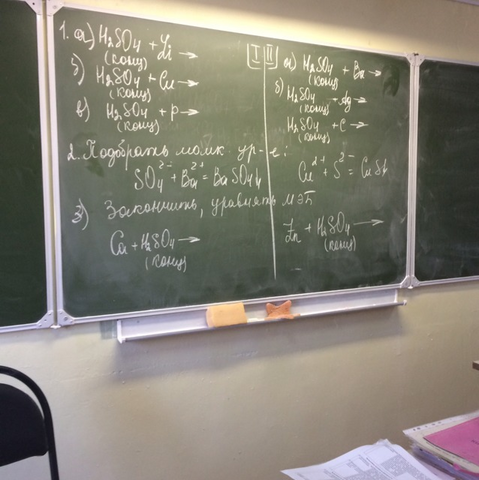 I
1. а) H₂SO₄ + Li →
(конц)
б) H₂SO₄ + Cu →
(конц)
в) H₂SO₄ + P →
(конц)
II
а) H₂SO₄ + Ba →
(конц)
б) H₂SO₄ + Ag →
(конц)
H₂SO₄ + C →
(конц)
2. Подобрать молек. ур-е:
SO₄²⁻ + Ba²⁺ = BaSO₄↓
Cu²⁺ + S²⁻ = CuS↓
3) Закончить, уравнять МЭБ
Ca + H₂SO₄ →
(конц)
Zn + H₂SO₄ →
(конц)